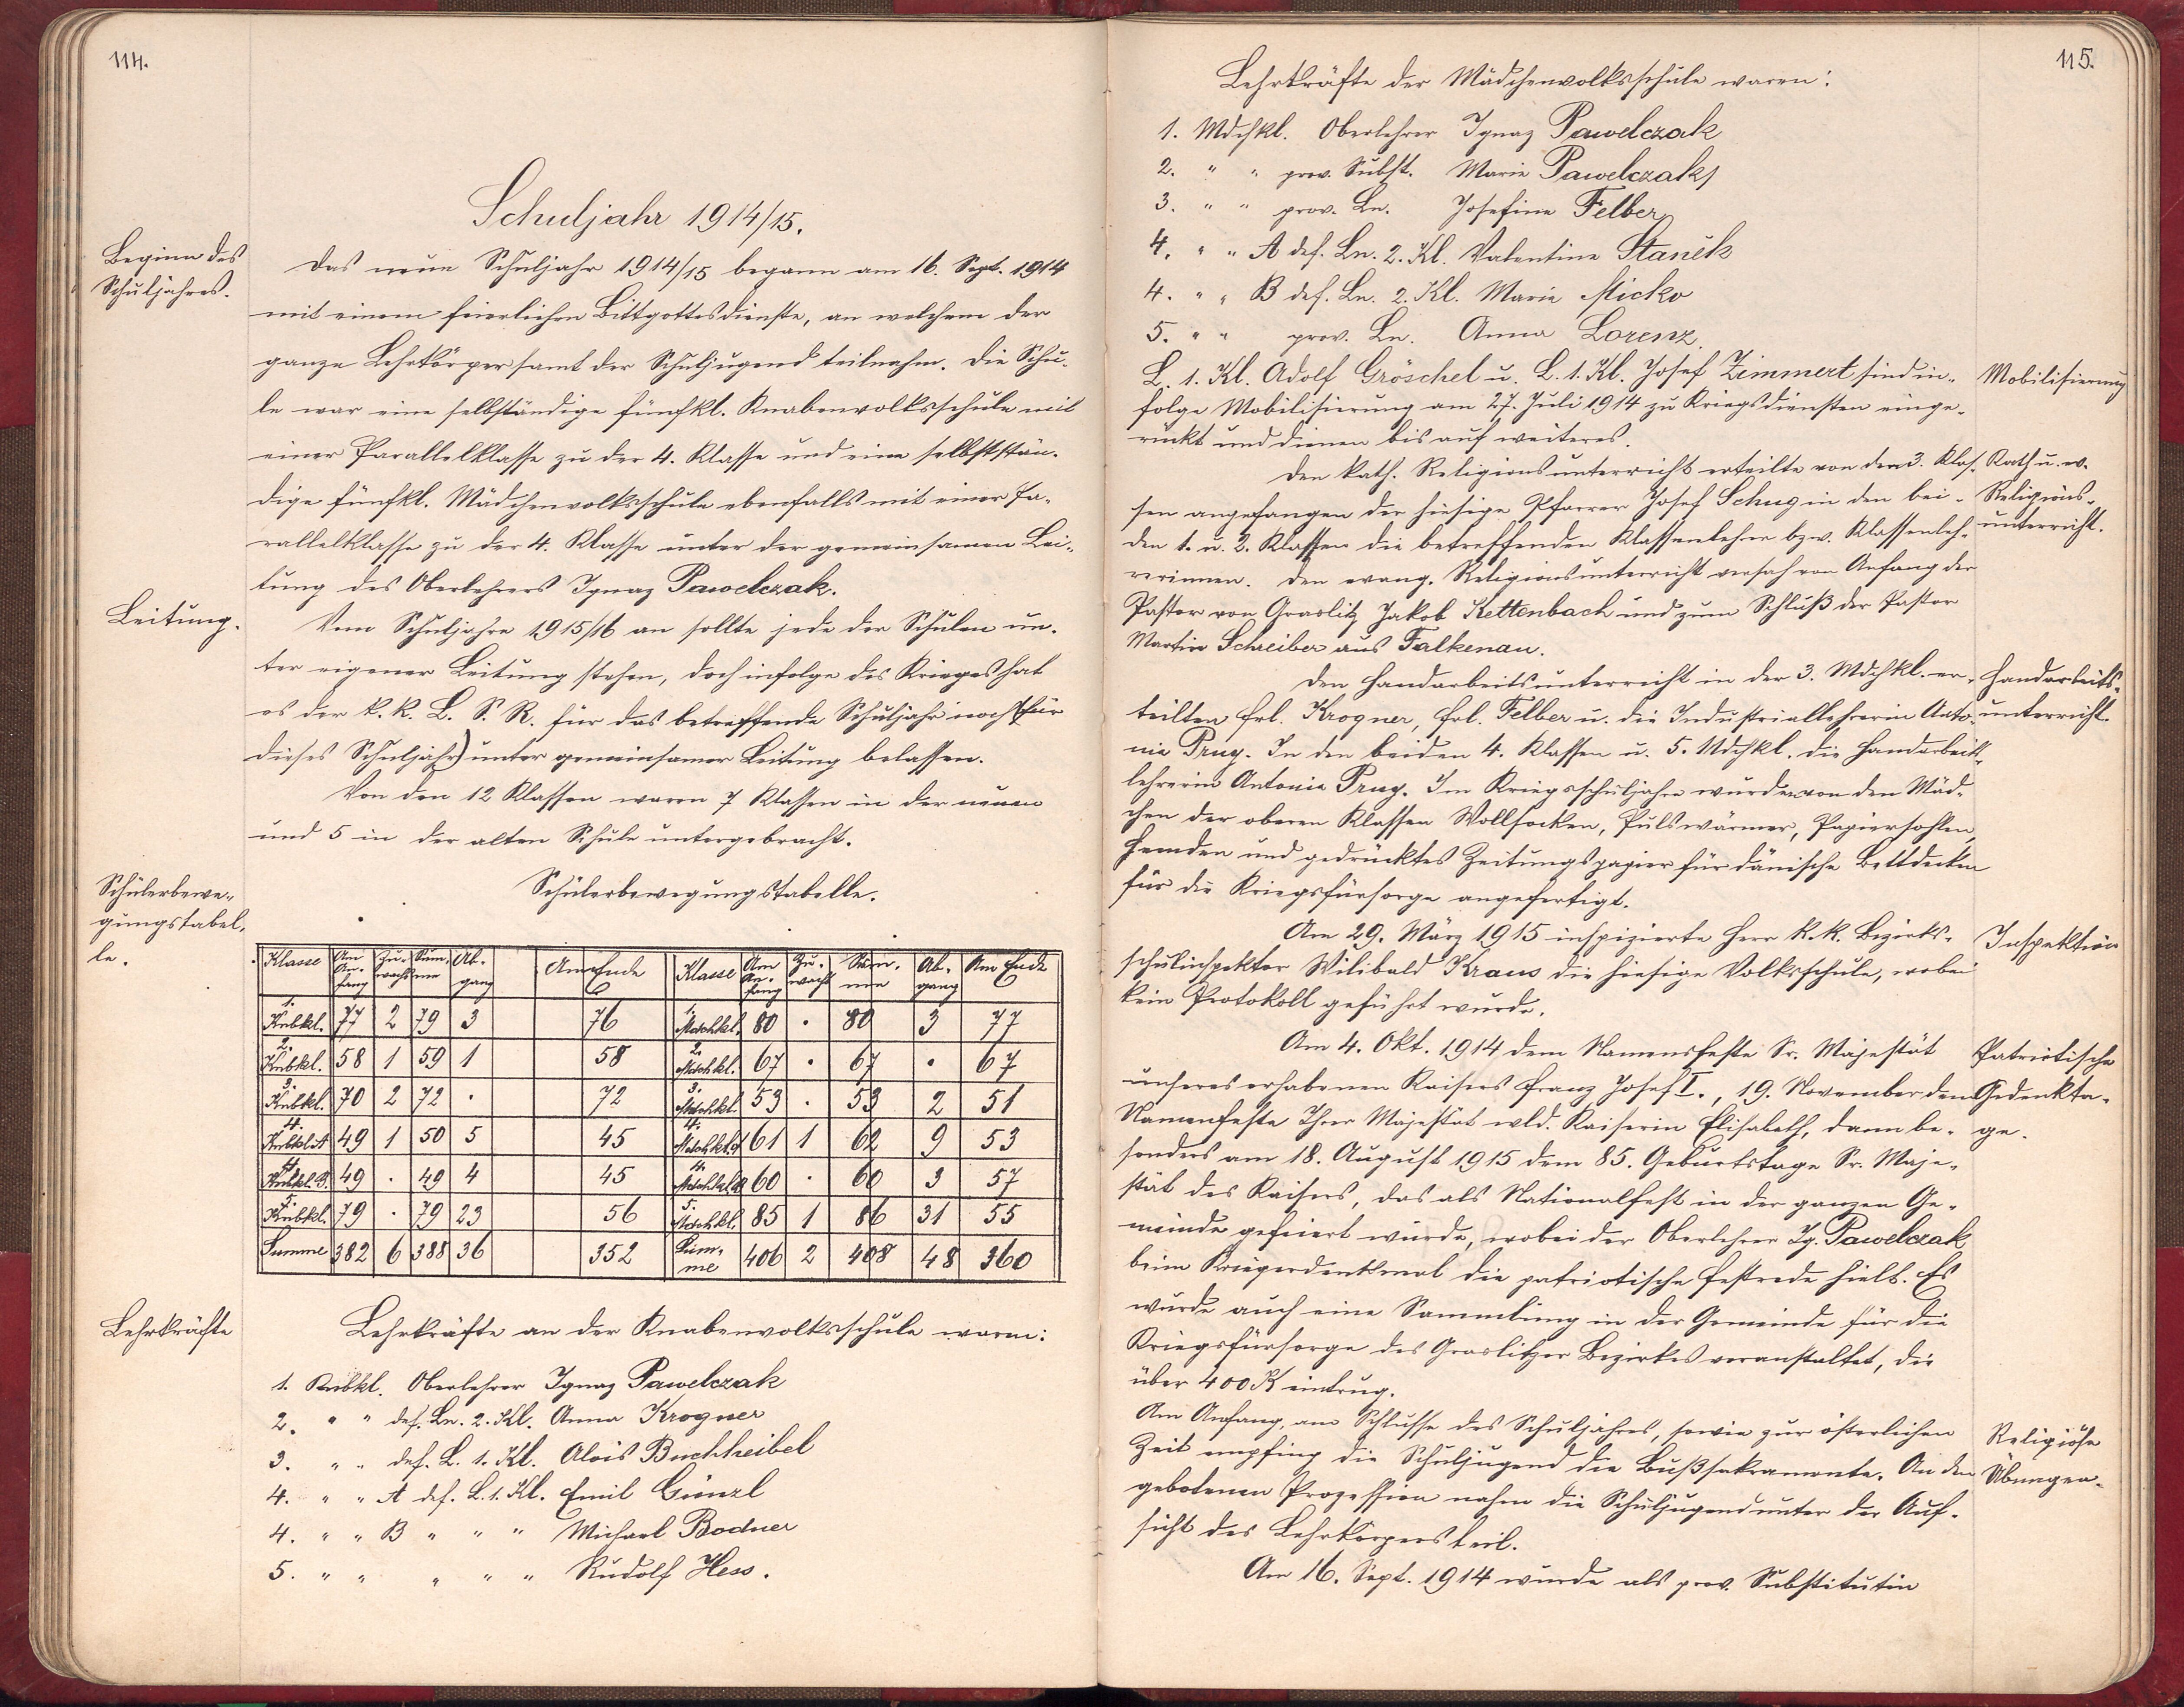 114.
Schuljahr 1914/15.
Beginn des
Schuljahres.
Das neue Schuljahr 1914/15 begann am 16. Sept. 1914
mit einem feierlichen Bittgottesdienste, an welchem der
ganze Lehrkörper samt der Schuljugend teilnahm. Die Schu-
le war eine selbständige fünfkl. Knabenvolksschule mit
einer Parallelklasse zu der 4. Klasse und eine selbststän-
dige fünfkl. Mädchenvolksschule ebenfalls mit einer Pa-
rallelklasse zu der 4. Klasse unter der gemeinsamen Lei-
tung des Oberlehrers Ignaz Pawelczak.
Leitung.
Vom Schuljahre 1915/16 an sollte jede der Schulen un-
ter eigener Leitung stehen, doch infolge des Krieges hat
es der k. k. L. S. R. für das betreffende Schuljahr noch (für
dieses Schuljahr) unter gemeinsamer Leitung belassen.
Von den 12 Klassen waren 7 Klassen in der neuen
und 5 in der alten Schule untergebracht.
Schülerbewe-
gungstabel-
le.
Schülerbewegungstabelle.
Klasse Am An-fang Zu-wachs Sum-me Ab-gang Am Ende Klasse Am An-fang Zu-wachs Sum-me Ab-gang Am Ende
1. Knbkl. 77 2 79 3 76 1. Mdchkl. 80 . 80 3 77
2. Knbkl. 58 1 59 1 58 2. Mdchkl. 67 . 67 . 67
3. Knbkl. 70 2 72 . 72 3. Mdchkl. 53 . 53 2 51
4. Knbkl. A 49 1 50 5 45 4. Mdchkl. A 61 1 62 9 53
4. Knbkl. B. 49 . 49 4 45 4. Mdchkl. B 60 . 60 3 57
5. Knbkl. 79 . 79 23 56 5. Mdchkl. 85 1 86 31 55
Summe 382 6 388 36 352 Sum-me 406 2 408 48 360
Lehrkräfte
Lehrkräfte an der Knabenvolksschule waren:
1. Knbkl. Oberlehrer Ignaz Pawelczak
2. " " def. Ln. 2. Kl. Anna Krogner
3. " " def. L. 1. Kl. Alois Buchheibel
4. " " A def. L. 1. Kl. Emil Günzl
4. " " B " " " Michael Bodner
5. " " " " " Rudolf Hess.
115.
Lehrkräfte der Mädchenvolksschule waren:
1. Mdchkl. Oberlehrer Ignaz Pawelczak
2. " " prov. Subst. Marie Pawelczak
3. " " prov. Ln. Josefine Felber
4. " " A def. Ln. 2. Kl. Valentine Staněk
4. " " B def. Ln. 2. Kl. Marie Micko
5. " " prov. Ln. Anna Lorenz.
L. 1. Kl. Adolf Gröschel u. L. 1. Kl. Josef Zimmert sind in-
Mobilisierung
folge Mobilisierung am 27. Juli 1914 zu Kriegsdiensten einge-
rückt und dienen bis auf weiteres.
Den kath. Religionsunterricht erteilte von den 3. Klas-
Kath u. ev.
Religions-
unterricht.
sen angefangen der hiesige Pfarrer Josef Schug in den bei-
den 1. u. 2. Klassen die betreffenden Klassenlehrer bzw. Klassenleh-
rerinnen. Den evang. Religionsunterricht versah von Anfang der
Pastor von Graslitz Jakob Kettenbach und zum Schluß der Pastor
Martin Schreiber aus Falkenau.
Den Handarbeitsunterricht in der 3. Mdchkl. er-
Handarbeits-
unterricht.
teilten Frl. Krogner, Frl. Felber u. die Industriallehrerin Anto-
nie Prug. In den beiden 4. Klassen u. 5. Mdchkl. die Handarbeits-
lehrerin Antonie Prug. Im Kriegsschuljahre wurden von den Mäd-
chen der oberen Klassen Wollsocken, Pulswärmer, Papiersohlen,
Hemden und gedrücktes Zeitungspapier für dänische Bettdecken
für die Kriegsfürsorge angefertigt.
Am 29. März 1915 inspizierte Herr k. k. Bezirks-
Inspektion
schulinspektor Wilibald Kraus die hiesige Volksschule, wobei
kein Protokoll geführt wurde.
Am 4. Okt. 1914 dem Namensfeste Sr. Majestät
Patriotische
Gedenkta-
ge.
unseres erhabenen Kaisers Franz Josef I., 19. November dem
Namenfeste Ihrer Majestät wld. Kaiserin Elisabeth, dann be-
sonders am 18. August 1915 dem 85. Geburtstage Sr. Maje-
stät des Kaisers, das als Nationalfest in der ganzen Ge-
meinde gefeiert wurde, wobei der Oberlehrer Ig. Pawelczak
beim Kriegerdenkmal die patriotische Festrede hielt. Es
wurde auch eine Sammlung in der Gemeinde für die
Kriegsfürsorge des Graslitzer Bezirkes veranstaltet, die
über 400 K eintrug.
Am Anfang, am Schlusse des Schuljahres, sowie zur österlichen
Religiöse
Übungen.
Zeit empfing die Schuljugend die Bußsakramente. An den
gebotenen Prozession nahm die Schuljugend unter der Auf-
sicht des Lehrkörpers teil.
Am 16. Sept. 1914 wurde als prov. Substitutin